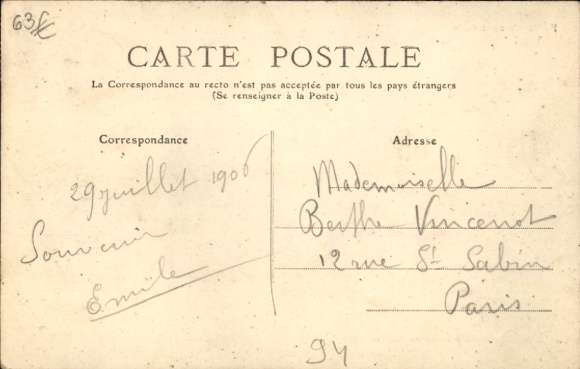 63
CARTE POSTALE
La Correspondance au recto n'est pas acceptée par tous les pays étrangers
(Se renseigner à la Poste)
Correspondance
Adresse
29 juillet 1906
Souvenir
Emile
Mademoiselle
Berthe Vincenot
12 rue St Sabin
Paris
94